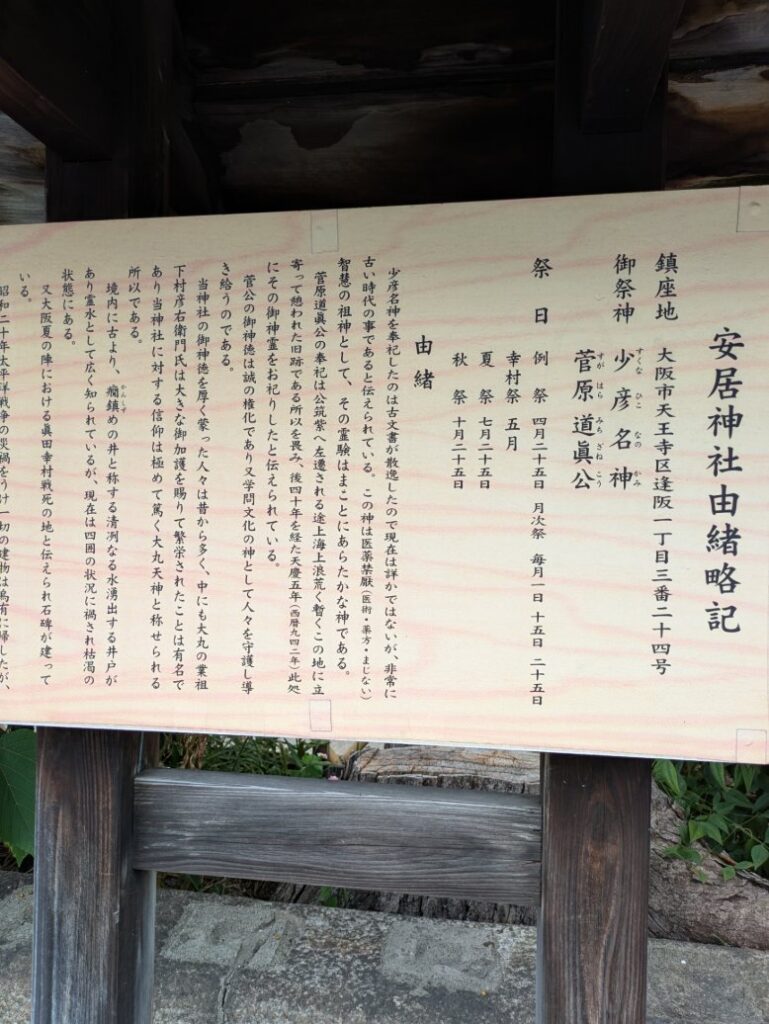 安居神社由緒略記
鎮座地 大阪市天王寺区逢阪一丁目三番二十四号
御祭神 少彦名神
すくな ひこ なの かみ
菅原道眞公
すが はら みち ざね こう
祭日 例祭 四月二十五日 月次祭 毎月一日 十五日 二十五日
幸村祭 五月
夏祭 七月二十五日
秋祭 十月二十五日
由緒
少彦名神を奉祀したのは古文書が散逸したので現在は詳かではないが、非常に
古い時代の事であると伝えられている。この神は医薬禁厭(医術・薬方・まじない)
智慧の祖神として、その霊験はまことにあらたかな神である。
菅原道眞公の奉祀は公筑紫へ左遷される途上海上浪荒く暫くこの地に立
寄って憩われた旧跡である所以を畏み、後四十年を経た天慶五年(西暦九四二年)此処
にその御神霊をお祀りしたと伝えられている。
菅公の御神徳は誠の権化であり又学問文化の神として人々を守護し導
き給うのである。
当神社の御神徳を厚く蒙った人々は昔から多く、中にも大丸の業祖
下村彦右衛門氏は大きな御加護を賜りて繁栄されたことは有名で
あり当神社に対する信仰は極めて篤く大丸天神と称せられる
所以である。
境内に古より、癇鎮めの井と称する清冽なる水湧出する井戸が
かんしず
あり霊水として広く知られているが、現在は四囲の状況に禍され枯渇の
状態にある。
又大阪夏の陣における眞田幸村戦死の地と伝えられ石碑が建って
いる。
昭和二十年太平洋戦争の災禍をうけ一切の建物は烏有に帰したが、